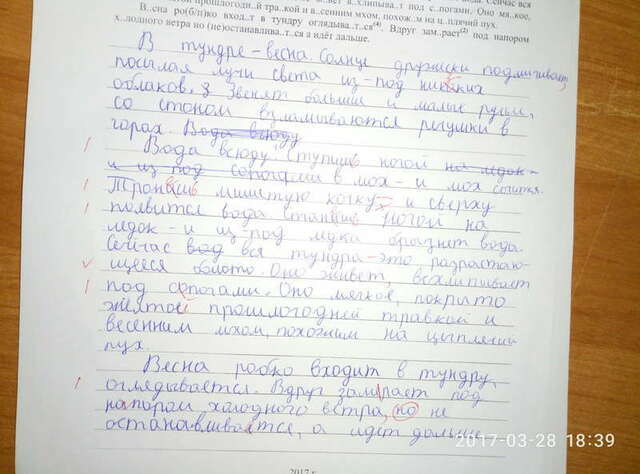 прошлогодн..й тра..кой и в..сенним мхом, похож..м на ц..плячий пух.
В..сна ро(б/п)ко вход..т в тундру оглядыва..т..ся(4). Вдруг зам..рает(2) под напором
х..лодного ветра но (не)останавлива..т..ся а идёт дальше.
В тундре - весна. Солнце дружески подмигивает,
посылая лучи света из-под низких
облаков. Звенят большие и малые ручьи,
со стоном взламываются речушки в
горах. Вода всюду
Вода всюду. Ступишь ногой на ледок -
и из под сапогами в мох - и мох
Тронешь мшистую кочку, и сверху
появится вода станешь ногой на
ледок - и из-под ледка брызнет вода.
Сейчас вод вся тундра - это разрастаю-
щееся болото. Оно живет, всхлипывает
под сапогами. Оно мягкое, покрыто
желтой прошлогодней травкой и
весенним мхом, похожим на цыплячий
пух.
Весна робко входит в тундру,
оглядывается. Вдруг замирает под
напором холодного ветра, но не
останавливается, а идет дальше.
2017-03-28 18:39
2017 г.